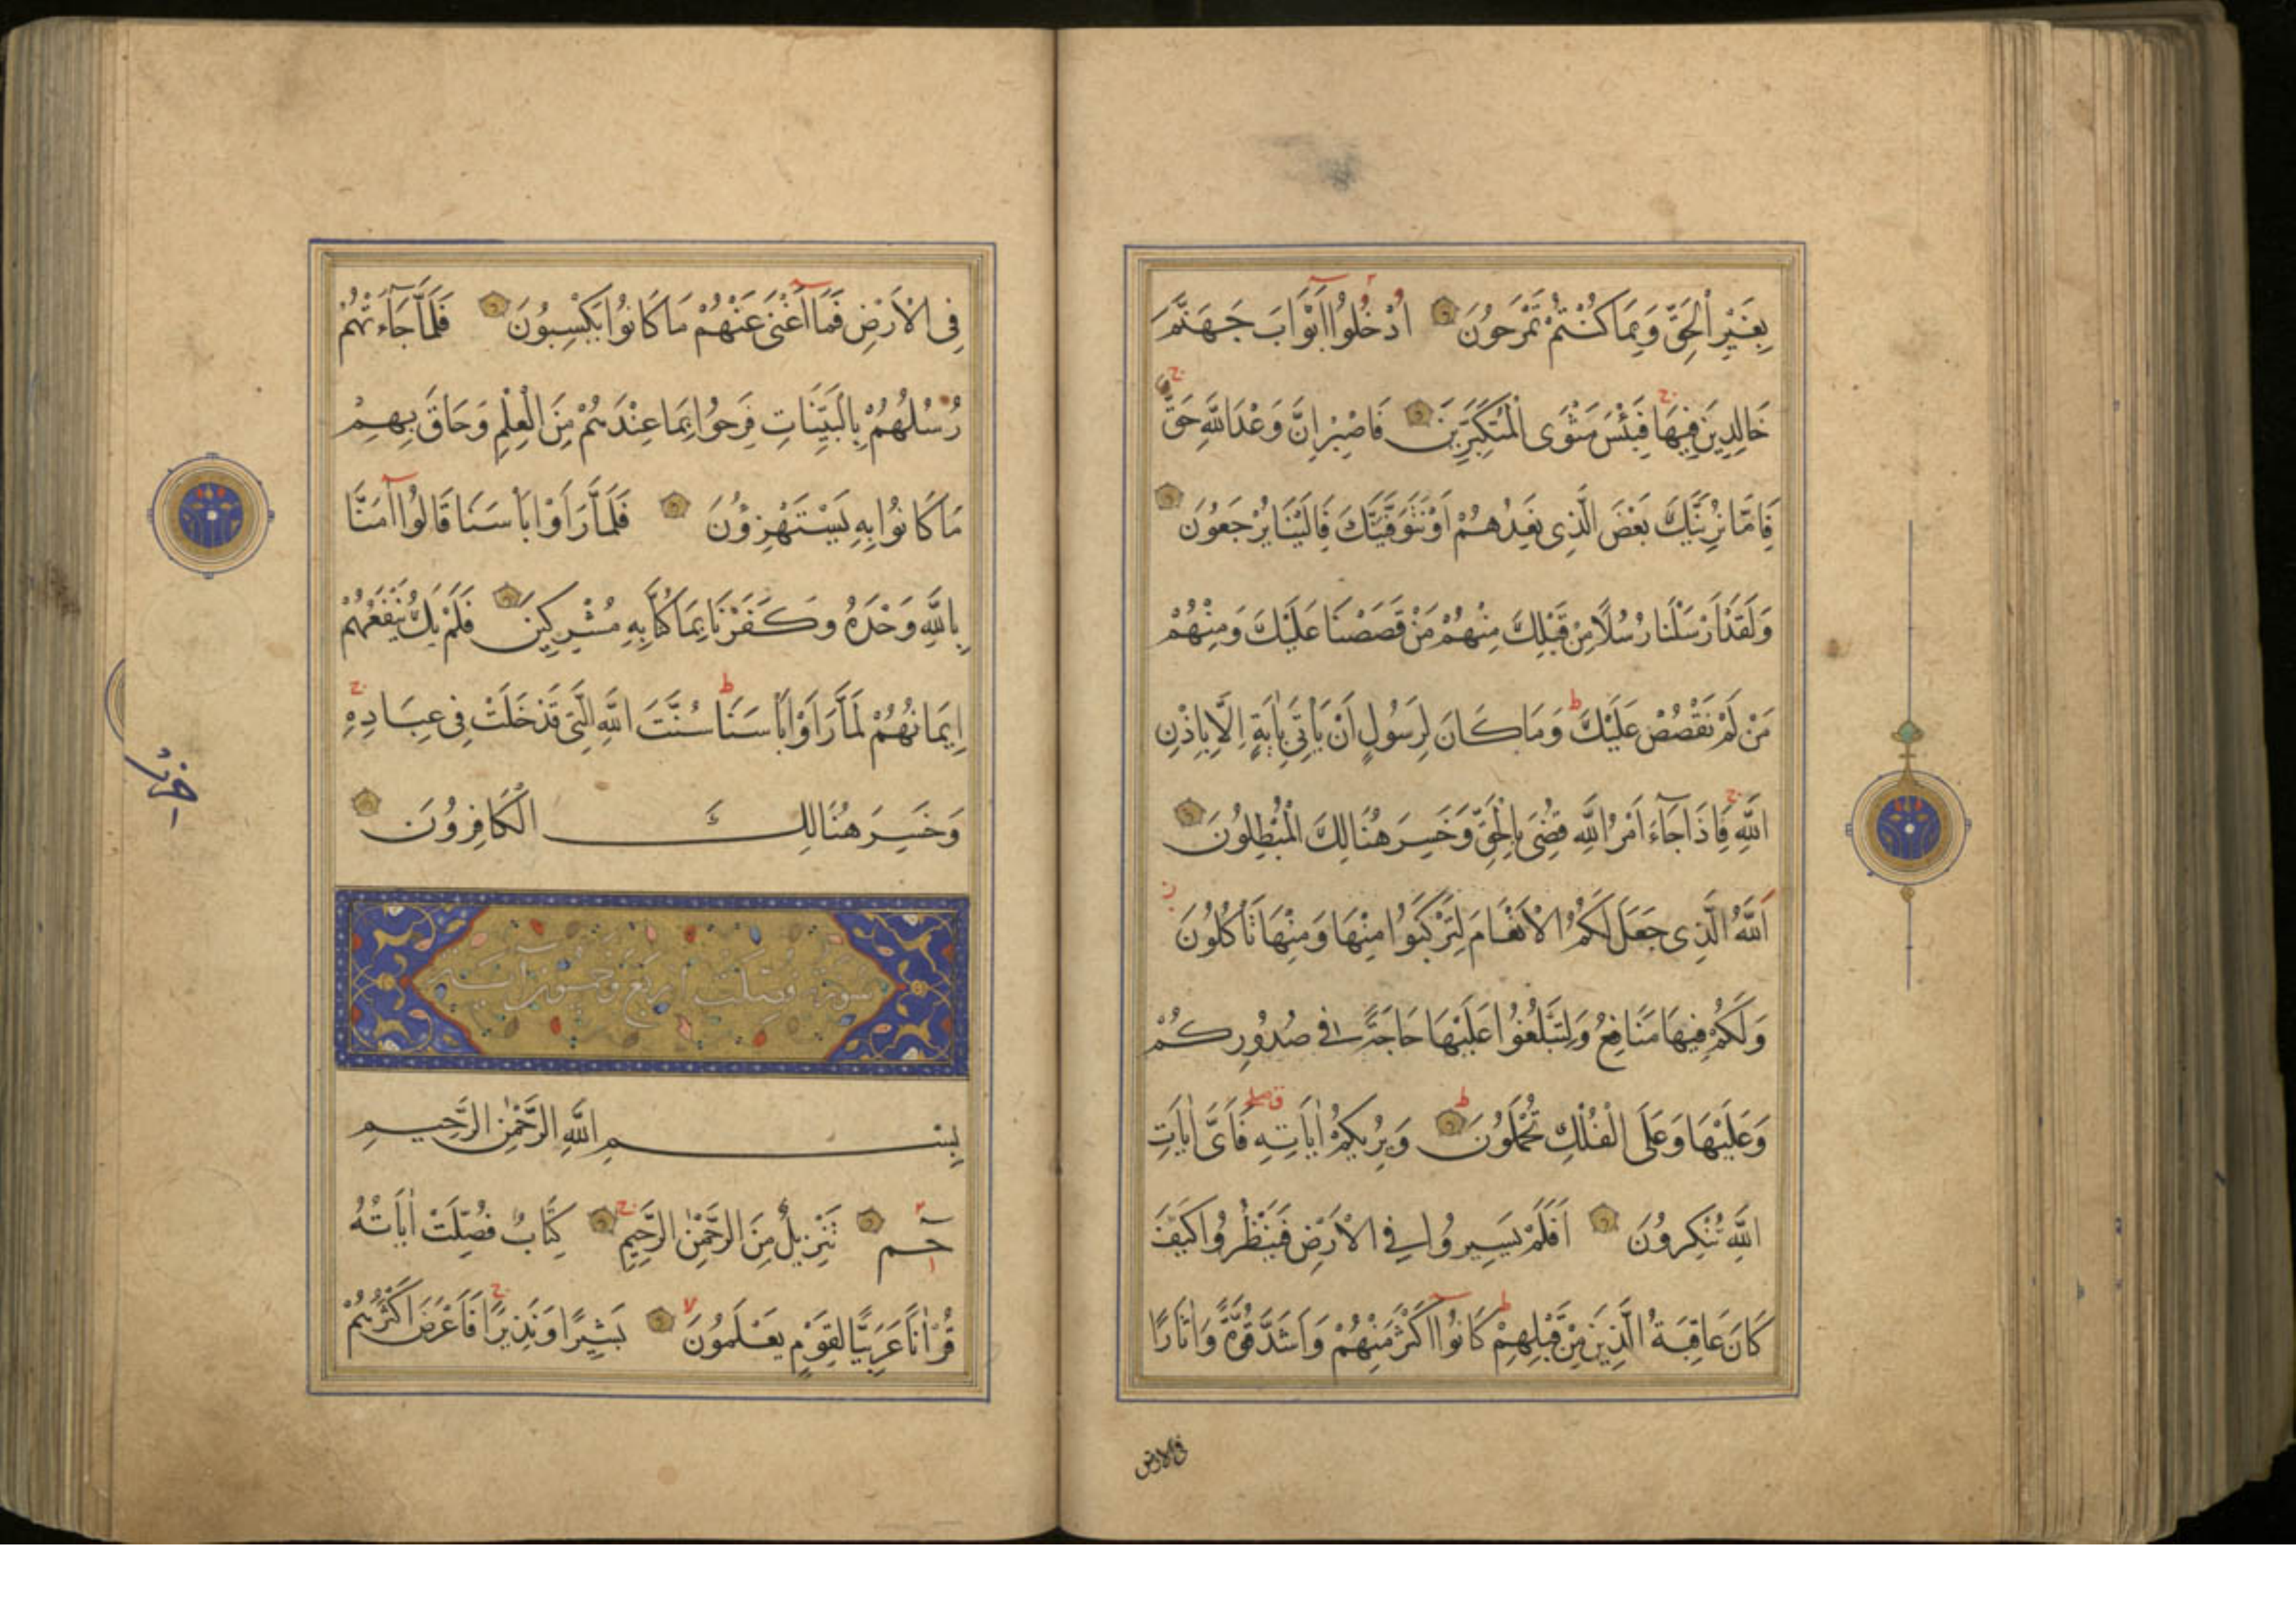 بِغَيْرِ الْحَقِّ وَبِمَا كُنْتُمْ تَمْرَحُونَ اُدْخُلُوا اَبْوَابَ جَهَنَّمَ
خَالِدِينَ فِيهَا فَبِئْسَ مَثْوَى الْمُتَكَبِّرِينَ فَاصْبِرْ اِنَّ وَعْدَ اللَّهِ حَقٌّ
فَاِمَّا نُرِيَنَّكَ بَعْضَ الَّذِى نَعِدُهُمْ اَوْ نَتَوَفَّيَنَّكَ فَاِلَيْنَا يُرْجَعُونَ
وَلَقَدْ اَرْسَلْنَا رُسُلًا مِنْ قَبْلِكَ مِنْهُمْ مَنْ قَصَصْنَا عَلَيْكَ وَمِنْهُمْ
مَنْ لَمْ نَقْصُصْ عَلَيْكَ وَمَا كَانَ لِرَسُولٍ اَنْ يَاْتِىَ بِاٰيَةٍ اِلَّا بِاِذْنِ
اللَّهِ فَاِذَا جَآءَ اَمْرُ اللَّهِ قُضِىَ بِالْحَقِّ وَخَسِرَ هُنَالِكَ الْمُبْطِلُونَ
اَللَّهُ الَّذِى جَعَلَ لَكُمُ الْاَنْعَامَ لِتَرْكَبُوا مِنْهَا وَمِنْهَا تَاْكُلُونَ
وَلَكُمْ فِيهَا مَنَافِعُ وَلِتَبْلُغُوا عَلَيْهَا حَاجَةً فِى صُدُورِكُمْ
وَعَلَيْهَا وَعَلَى الْفُلْكِ تُحْمَلُونَ وَيُرِيكُمْ اٰيَاتِهِ فَاَىَّ اٰيَاتِ
اللَّهِ تُنْكِرُونَ اَفَلَمْ يَسِيرُوا فِى الْاَرْضِ فَيَنْظُرُوا كَيْفَ
كَانَ عَاقِبَةُ الَّذِينَ مِنْ قَبْلِهِمْ كَانُوا اَكْثَرَ مِنْهُمْ وَاَشَدَّ قُوَّةً وَاٰثَارًا
فى الارض
فِى الْاَرْضِ فَمَا اَغْنَى عَنْهُمْ مَا كَانُوا يَكْسِبُونَ فَلَمَّا جَآءَتْهُمْ
رُسُلُهُمْ بِالْبَيِّنَاتِ فَرِحُوا بِمَا عِنْدَهُمْ مِنَ الْعِلْمِ وَحَاقَ بِهِمْ
مَا كَانُوا بِهِ يَسْتَهْزِؤُنَ فَلَمَّا رَاَوْا بَاْسَنَا قَالُوا اٰمَنَّا
بِاللَّهِ وَحْدَهُ وَكَفَرْنَا بِمَا كُنَّا بِهِ مُشْرِكِينَ فَلَمْ يَكُ يَنْفَعُهُمْ
اِيمَانُهُمْ لَمَّا رَاَوْا بَاْسَنَا سُنَّتَ اللَّهِ الَّتِى قَدْ خَلَتْ فِى عِبَادِهِ
وَخَسِرَ هُنَالِكَ الْكَافِرُونَ
سورة فصلت اربع وخمسون آية
بِسْمِ اللَّهِ الرَّحْمٰنِ الرَّحِيمِ
حٓم تَنْزِيلٌ مِنَ الرَّحْمٰنِ الرَّحِيمِ كِتَابٌ فُصِّلَتْ اٰيَاتُهُ
قُرْاٰنًا عَرَبِيًّا لِقَوْمٍ يَعْلَمُونَ بَشِيرًا وَنَذِيرًا فَاَعْرَضَ اَكْثَرُهُمْ